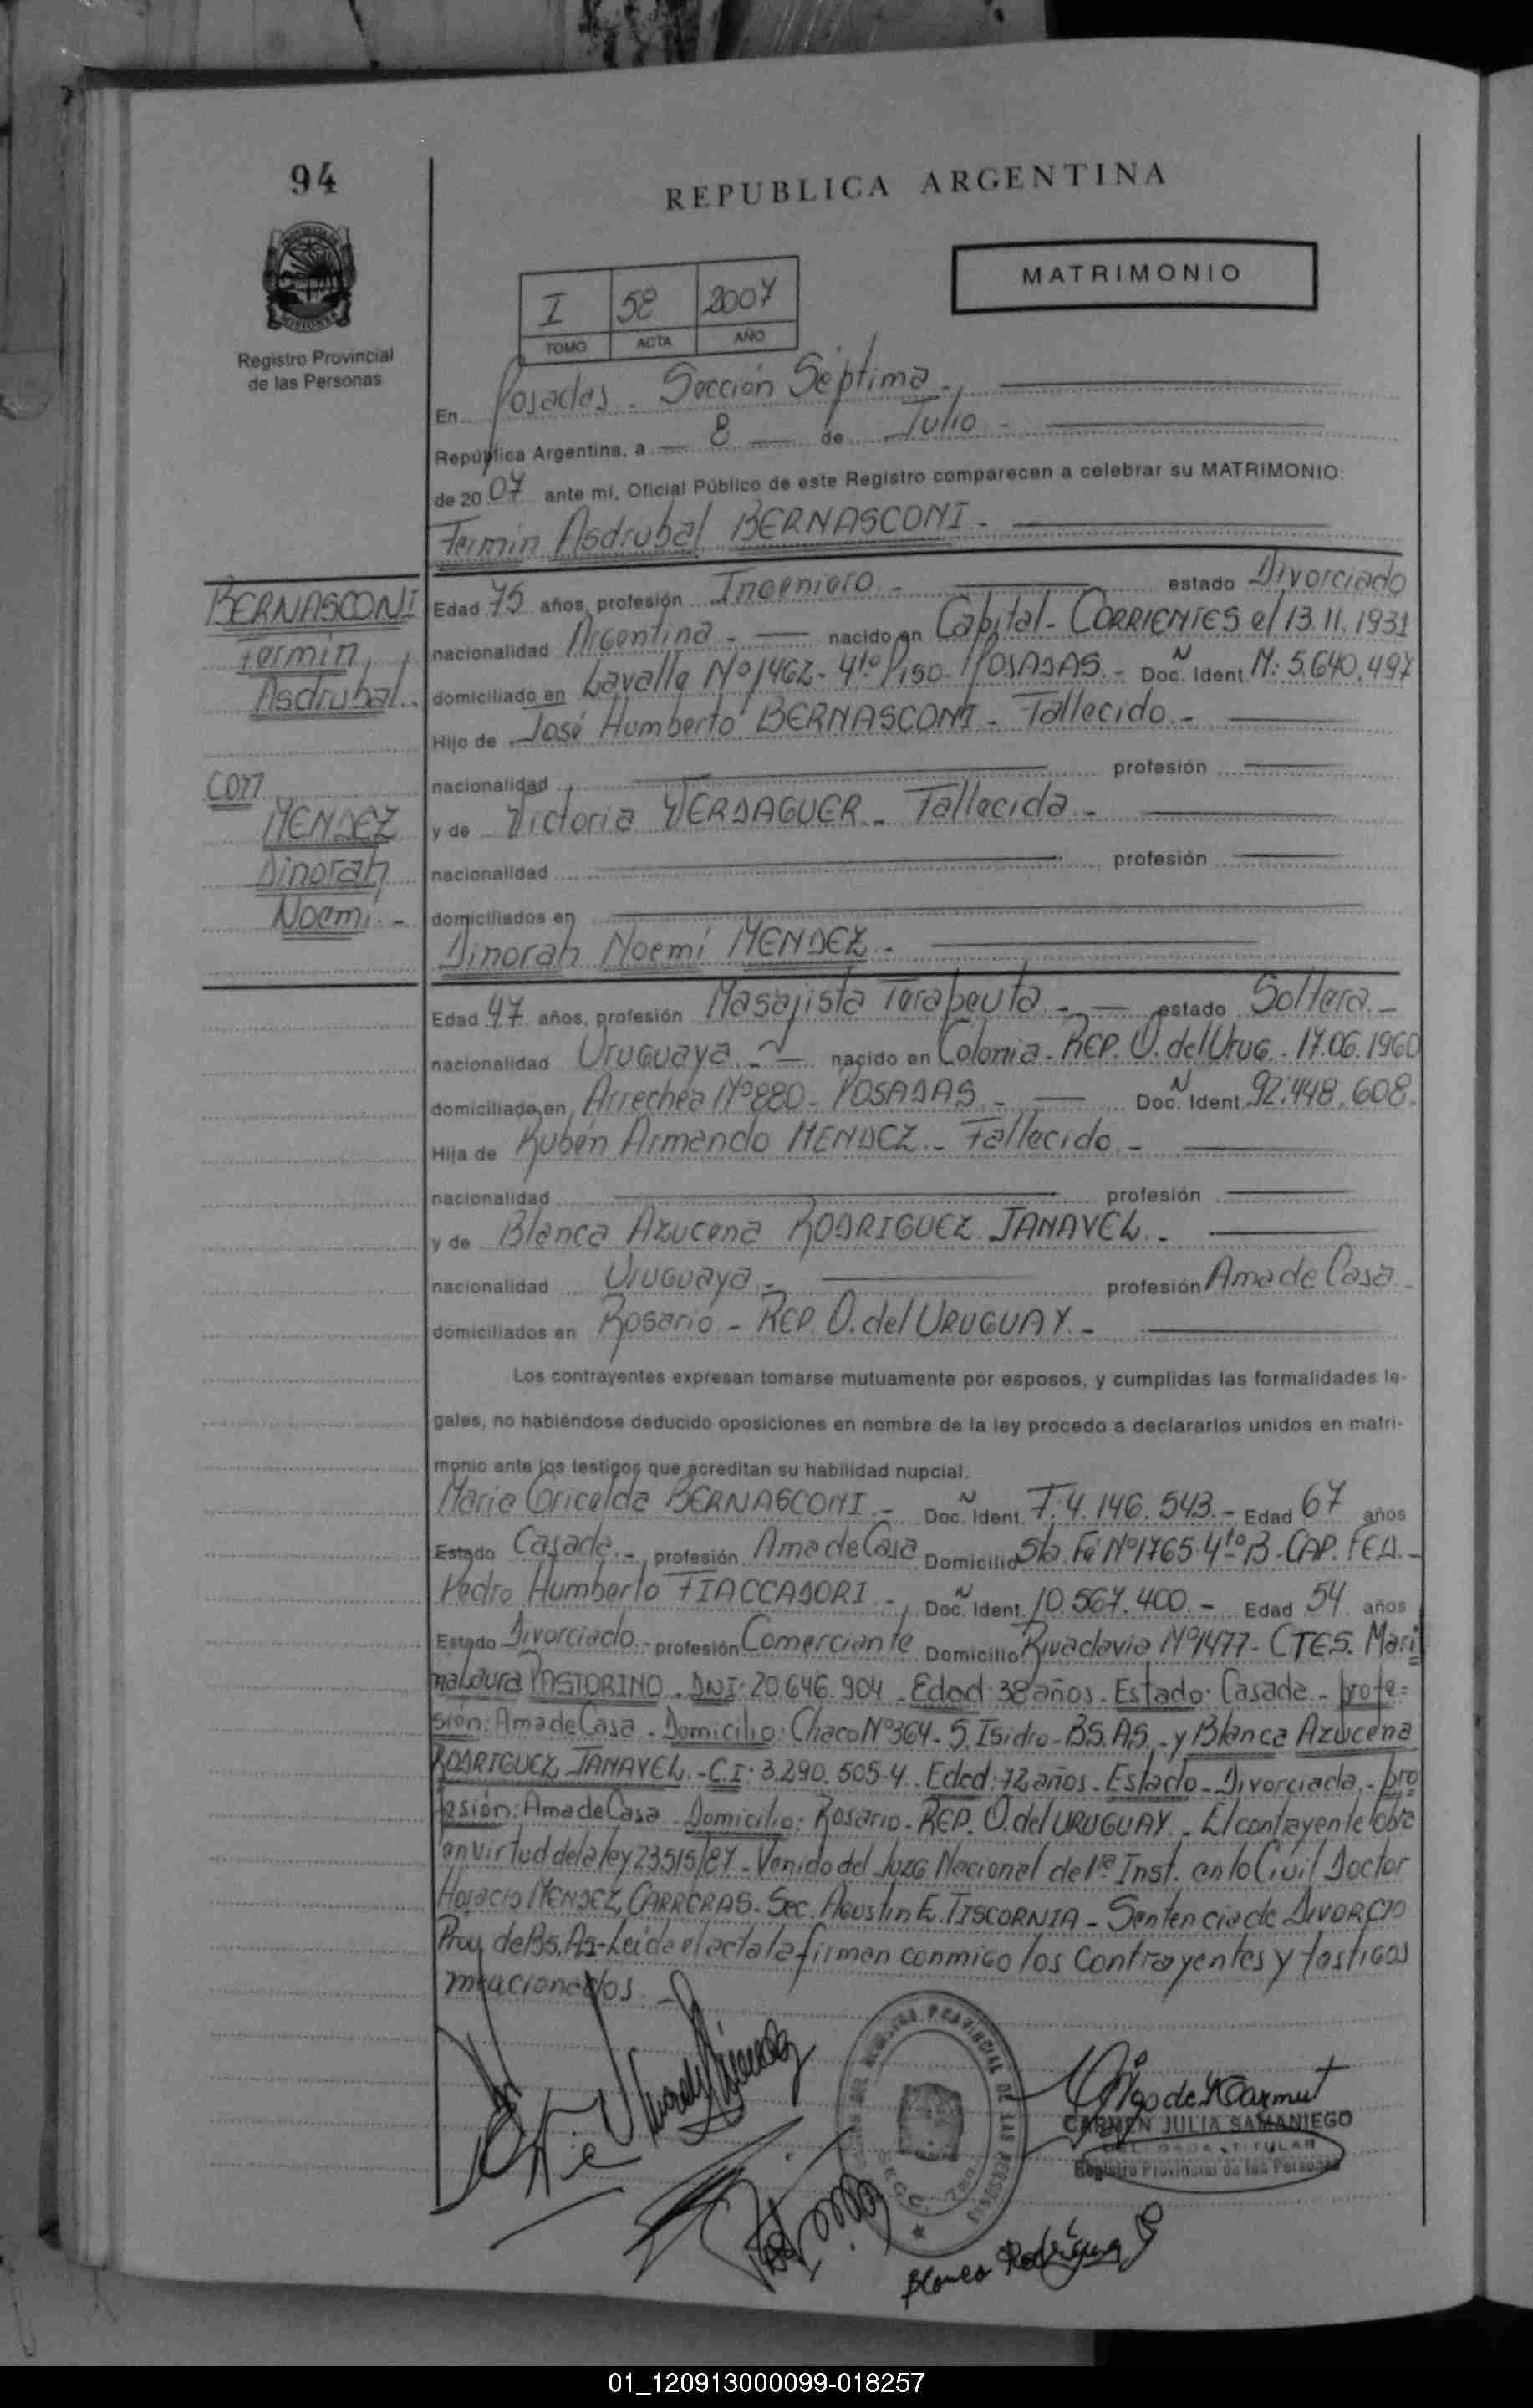 94
REPUBLICA ARGENTINA
MATRIMONIO
I 58 2007
TOMO ACTA AÑO
Registro Provincial
de las Personas
En Posadas - Sección Séptima.-
República Argentina, a 8 de Julio -
de 2007 ante mí, Oficial Público de este Registro comparecen a celebrar su MATRIMONIO:
Fermin Asdrubal BERNASCONI -
BERNASCONI
Fermin
Asdrubal.-
con
MENDEZ
Dinorah
Noemí.-
Edad 75 años, profesión Ingeniero - estado Divorciado
nacionalidad Argentina - nacido en Capital - CORRIENTES el 13.11.1931
domiciliado en Lavalle Nº 1462 - 4to Piso - POSADAS.- Doc. Ident. M: 5.640.497
Hijo de José Humberto BERNASCONI - Fallecido -
nacionalidad profesión
y de Victoria VERDAGUER - Fallecida -
nacionalidad profesión
domiciliados en
Dinorah Noemí MENDEZ -
Edad 47 años, profesión Masajista Terapeuta - estado Soltera -
nacionalidad Uruguaya - nacido en Colonia - REP. O. del Urug. - 17.06.1960
domiciliada en Arrechea Nº 880 - POSADAS - Doc. Ident. 92.448.608.
Hija de Rubén Armando MENDEZ - Fallecido -
nacionalidad profesión
y de Blanca Azucena RODRIGUEZ JANAVEL -
nacionalidad Uruguaya - profesión Ama de Casa -
domiciliados en Rosario - REP. O. del URUGUAY -
Los contrayentes expresan tomarse mutuamente por esposos, y cumplidas las formalidades le-
gales, no habiéndose deducido oposiciones en nombre de la ley procedo a declararlos unidos en matri-
monio ante los testigos que acreditan su habilidad nupcial.
Maria Gricelda BERNASCONI - Doc. Ident. F. 4.146.543.- Edad 67 años
Estado Casada - profesión Ama de Casa Domicilio Sta. Fé Nº 1765-4to B - CAP. FED. -
Pedro Humberto FIACCADORI - Doc. Ident. 10.567.400.- Edad 54 años
Estado Divorciado - profesión Comerciante Domicilio Rivadavia Nº 1477 - CTES. Mari
na Laura PASTORINO - DNI: 20.646.904 - Edad: 38 años - Estado: Casada - profe=
sión: Ama de Casa - Domicilio: Chaco Nº 364 - S. Isidro - BS. AS. - y Blanca Azucena
RODRIGUEZ JANAVEL - C.I: 3.290.505-4 Edad: 72 años - Estado - Divorciada - pro
fesión: Ama de Casa Domicilio: Rosario - REP. O. del URUGUAY - El contrayente lo hace
en virtud de la ley 23515/87 - Venido del Juzg Nacional de 1ra Inst. en lo Civil Doctor
Horacio MENDEZ CARRERAS - Sec. Agustin E. TISCORNIA - Sentencia de DIVORCIO
Prov. de Bs. As - Leída el acta la firman conmigo los Contrayentes y testigos
mencionados. -
CARMEN JULIA SAMANIEGO
TITULAR
Registro Provincial de las Personas
Blanca Rodríguez
01_120913000099-018257